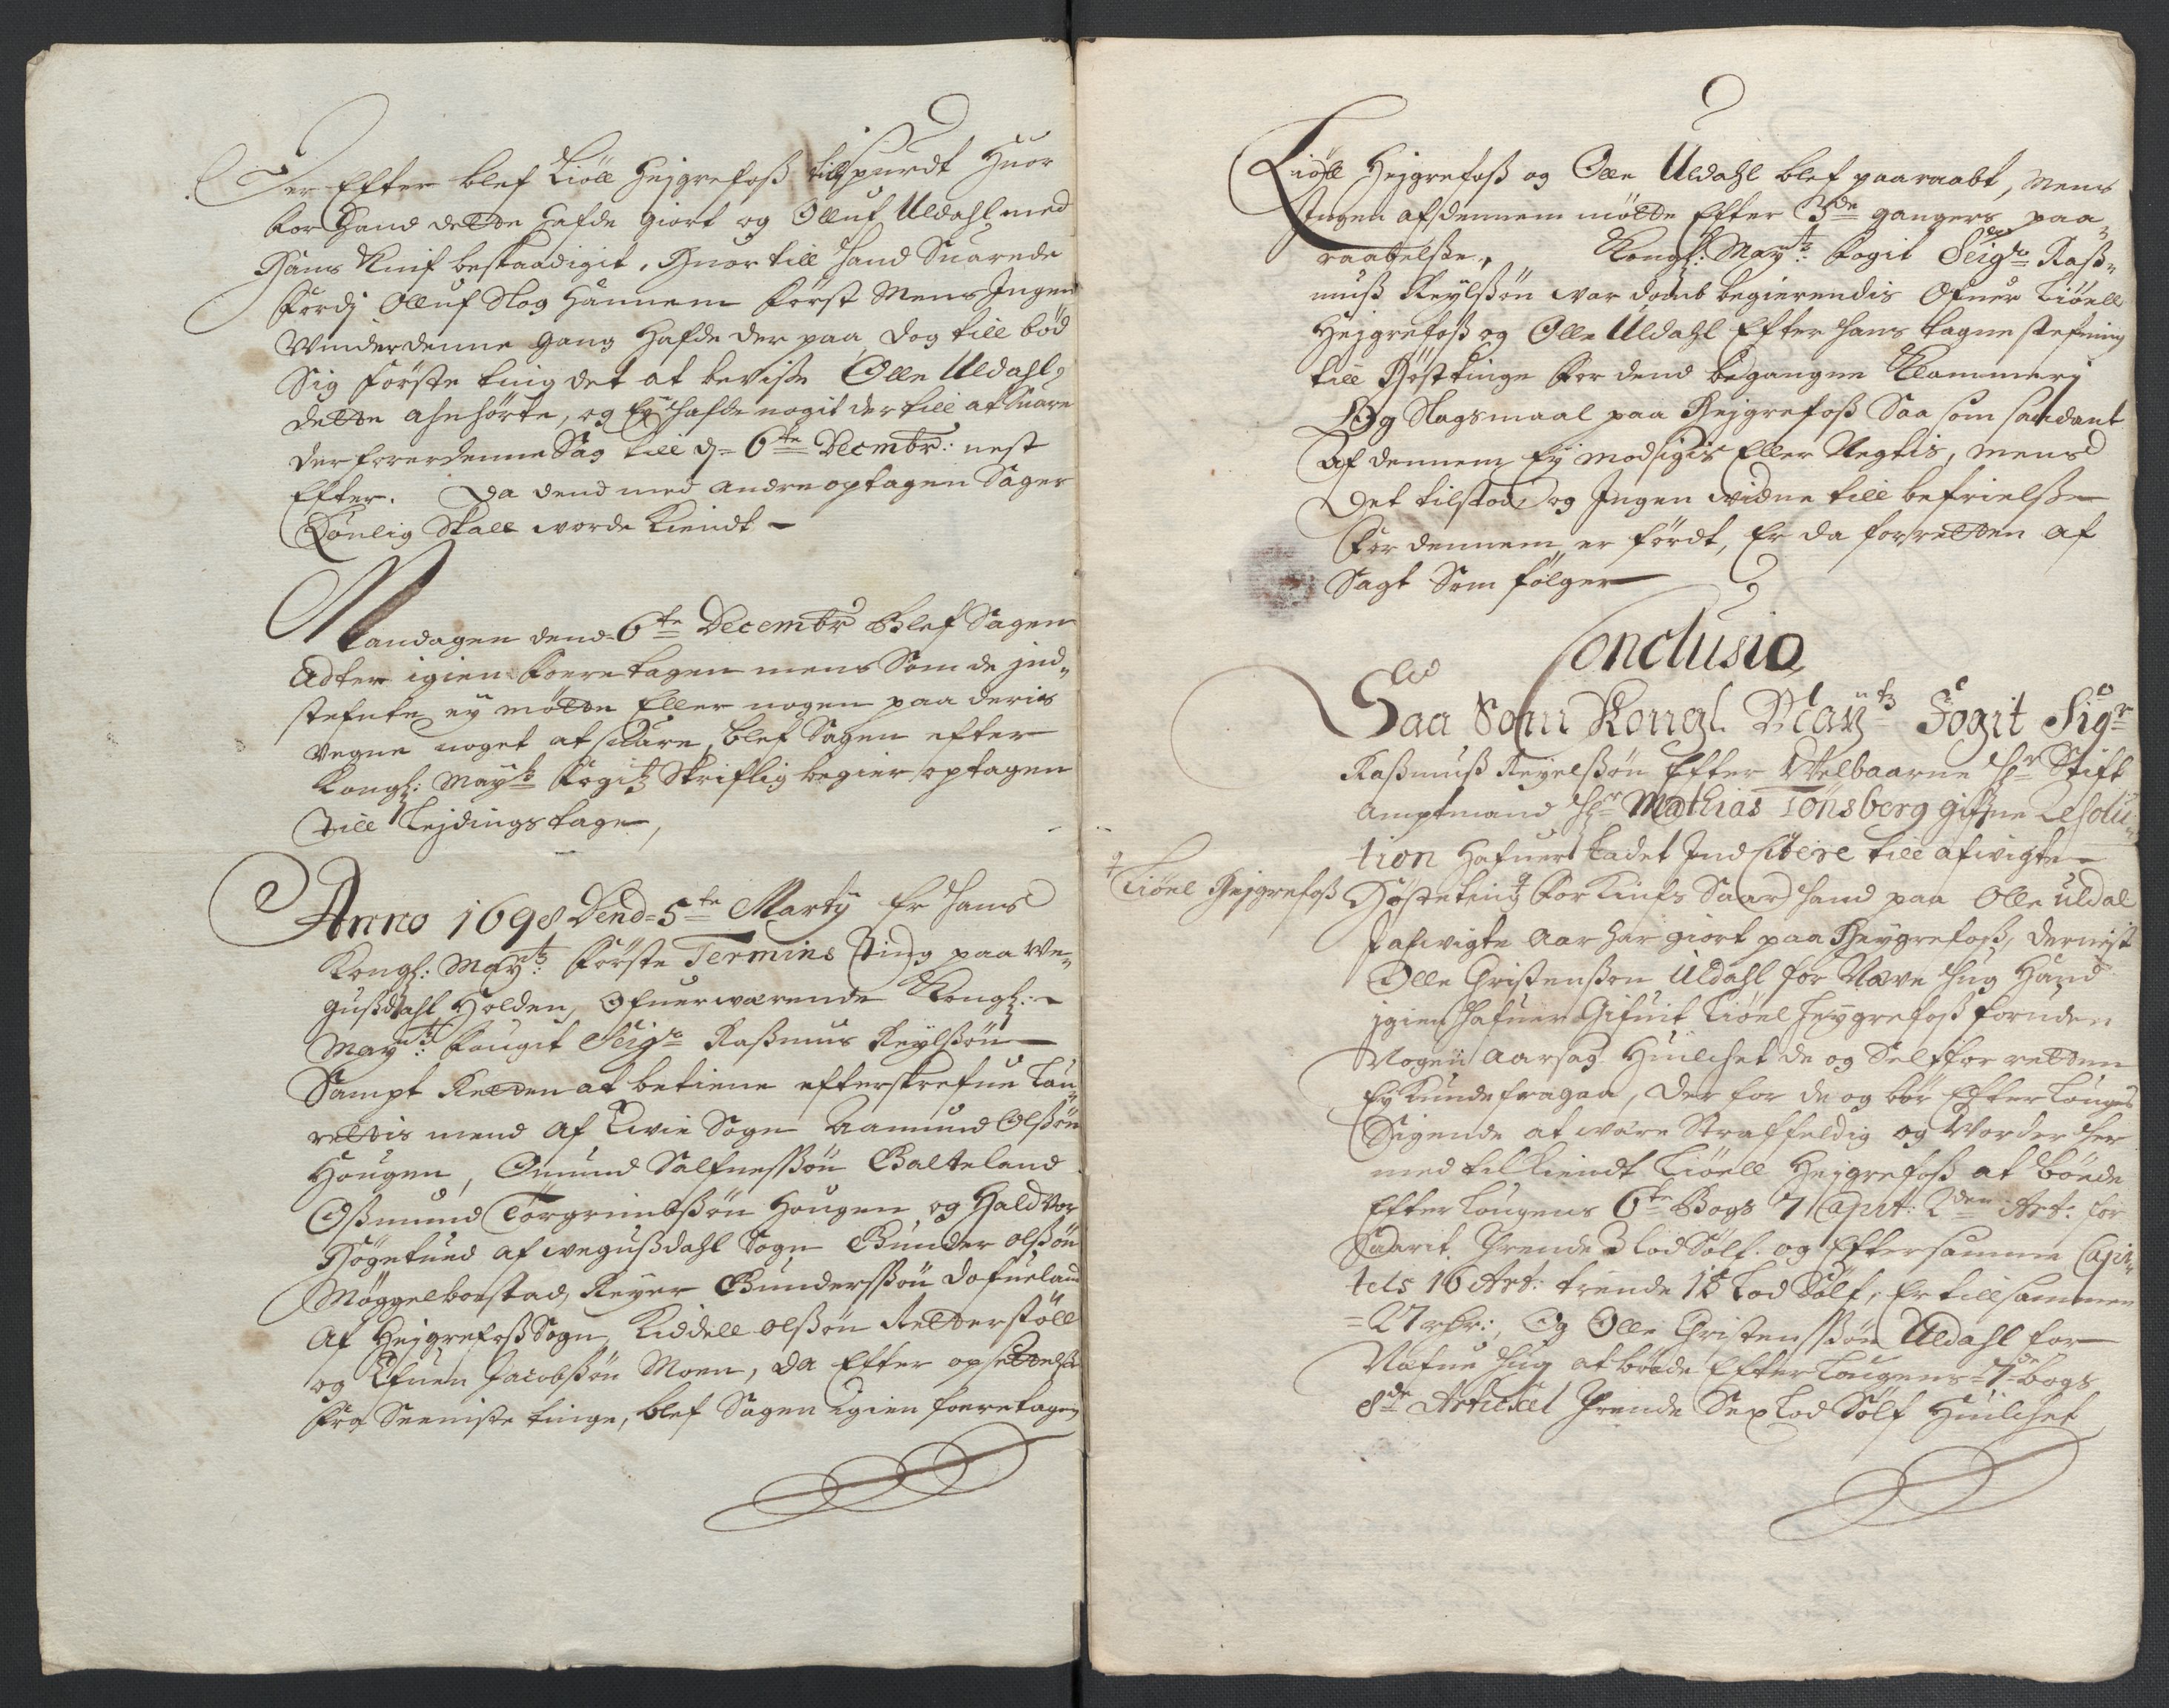 Der Efter blef Kiöll Hejgrefoss tillspurdt Huor
for Hand dette hafde giort og Olluf Uldahl med
Hans Knif beskadigit, Huor till Hand Suarede
fordj Olluf Slog Hannem först Mens Ingen
Vinder denne Gang Hafde der paa, dog till bød
Sig förste ting det at bevisse Olle Uldahl,
dette ahnhörte, og Ey Hafde nogit der till at Suare
der forer denne Sag till d= 6te Decmbr: nest
Efter. Da dend med andre optagen Sager
Endlig Skall worde Kiendt –
Mandagen dend 6te Decembr Blef Sagen
Adter igien foeretagen mens Som de jnd„
stefnte ey mötte Eller nogen paa deris
vegne noget at suare, blef Sagen efter
Kongl: Mayts fogitz Skriftlig begier optagen
till Lejdingsberge,
Anno 1698 Dend= 5te Marty Er Hans
Kongl: Mayts: förste Termins Ting paa We„
gussdahl Holden, Ofuerwærende Kongl:
Mayts: fougit Seigr Rassmus Keylssön
Sampt Retten at betiene efterskrefne Lau„
rettis mend af Ewie Sogn Aamund Olssön
Hougen, Omund Salfuessön Balteland
Ossmund Torgrimbssön Hougen og Haldvor
Högetued af wegussdahl Sogn Gunder olssön
Møggelbostad, Reyer Gunderssön Dofueland
Af Hejgrefoss Sogn, Kiddell olssön Retterstöll
og Efuen Jacobssön Moen, da Efter opsettelse
fra Seeniste tinge, blef Sagen igien foeretagen
Kiöll Hejgrefoss og Olle Uldahl blef paaraabt, Mens
Ingen af dennem mötte Efter 3de gangers paa„
raabelsse, Kongl: Mayts: fogit Seigr Rass„
muss Keylssön war domb begierendis Ofuer Kiöell
Hejgrefoss og Olle Uldahl Efter Hans tagne stefning
till Hösttinge for dend begangne Klammerj
Og Slagsmaal paa Hejgrefoss Saa som saadant
af dennem Ey modsigis Eller Negtis, mens
det tilstod og Ingen vidne till befrielsse
for dennem er fördt, Er da for retten af
Sagt Som fölger
Conclusio
Saa Som Kongl. Mayts Fogit Sigr
Rassmuss Keyelssön Efter Welbaarne Hr Stift
Amptmand Hr Mathias Tönsberg gifne Resolu„
tion Hafuer ladet Ind citere till afvigte
Kiöel Hejgrefoss Hösteting for Knifs Saar Hand paa Olle Uldal
J afvigte Aar har giort paa Heygrefoss, dernest
Olle Christenssen Uldahl for Næve Hug Hand
igien Hafuer Gifuit Kiöel Heygrefoss foruden
Nogen Aarsag Huilchet de og Self for retten
Ey Kunde fragaa, derfor de og bör Efter Lougens
Sigende at være Straffeldig og Worder Her
med tilkiendt Kiöell Hejgrefoss at bøede
Efter Lougens 6te Bogs 7 Capit: 2den Art: for
Saarit Trende 3 Lod Sölf. og Efter samme Capit„
tels 16 Art: trende 18 Lod Sölf, Er till sammen
=27 rdr:, Og Olle Christenssön Uldahl for
Næfue Hug at bøede Efter Lougens 7de bogs
8de Articul Trende Sex Lod Sölf Huilchet